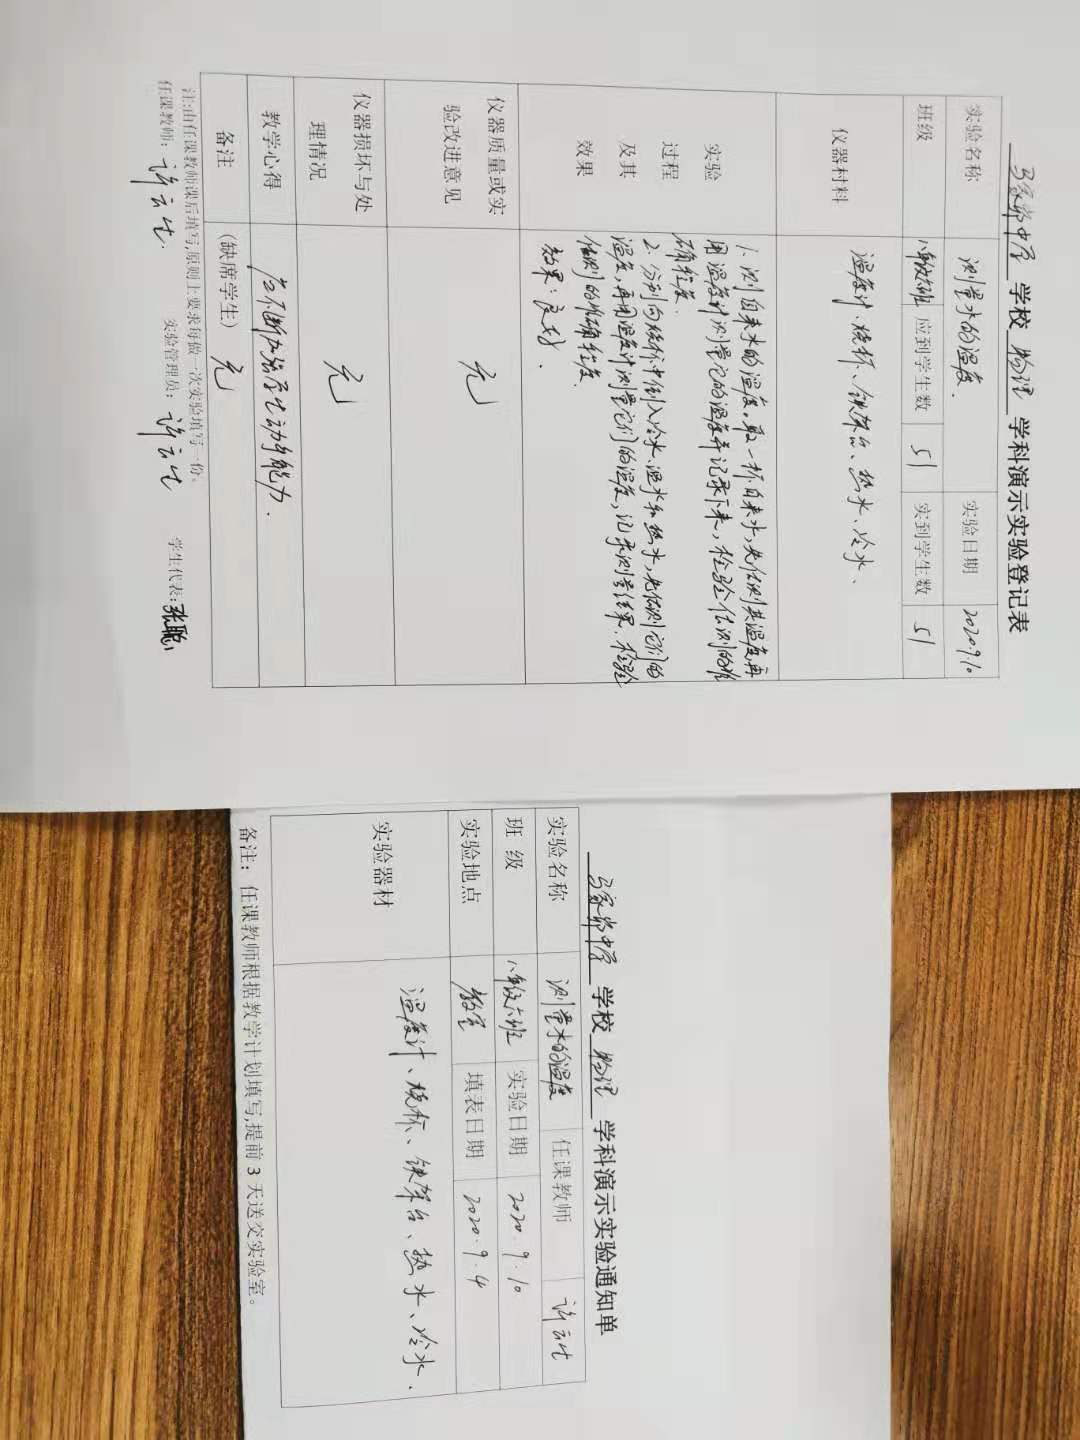 马家砦中学 学校 物理 学科演示实验登记表
实验名称 测量水的温度. 实验日期 2020.9.10
班级 八年级六班 应到学生数 51 实到学生数 51
仪器材料 温度计、烧杯、铁架台、热水、冷水、
实验
过程
及其
效果
1. 测自来水的温度。取一杯自来水,先估测其温度,再
用温度计测量它的温度并记录下来,检验估测的准
确程度.
2. 分别向烧杯中倒入冷水、温水和热水,先估测它们的
温度,再用温度计测量它们的温度,记录测量结果.检验
估测的准确程度.
效果:良好.
仪器质量或实
验改进意见
无
仪器损坏与处
理情况
无
教学心得 应不断加强学生动手能力.
备注 (缺席学生) 无
注:由任课教师课后填写,原则上要求每做一次实验填写一份。
任课教师: 实验管理员: 学生代表:张聪
马家砦中学 学校 物理 学科演示实验通知单
实验名称 测量水的温度 任课教师
班 级 八年级六班 实验日期 2020.9.10
实验地点 教室 填表日期 2020.9.4
实验器材 温度计、烧杯、铁架台、热水、冷水.
备注:任课教师根据教学计划填写,提前 3 天送交实验室。